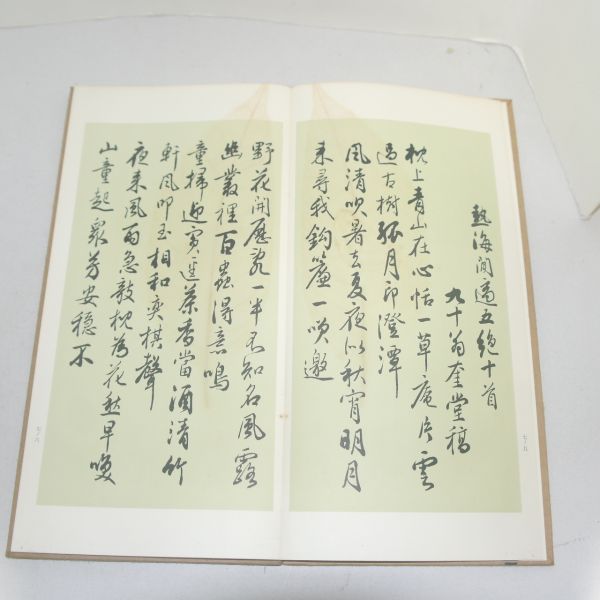 熱海閒適五絶十首
九十翁奎堂稿
枕上青山在心恬一草庵片雲
過古樹孤月印澄潭
風清吹暑去夏夜似秋宵明月
来尋我鉤簾一笑邀
野花開歴乱一半不知名風露
幽叢裡百虫得意鳴
童掃迎賓逕茶香當酒清竹
軒風叩玉相和奕棋聲
夜来風雨急敲枕為花愁早喚
山童起衆芳安穏不